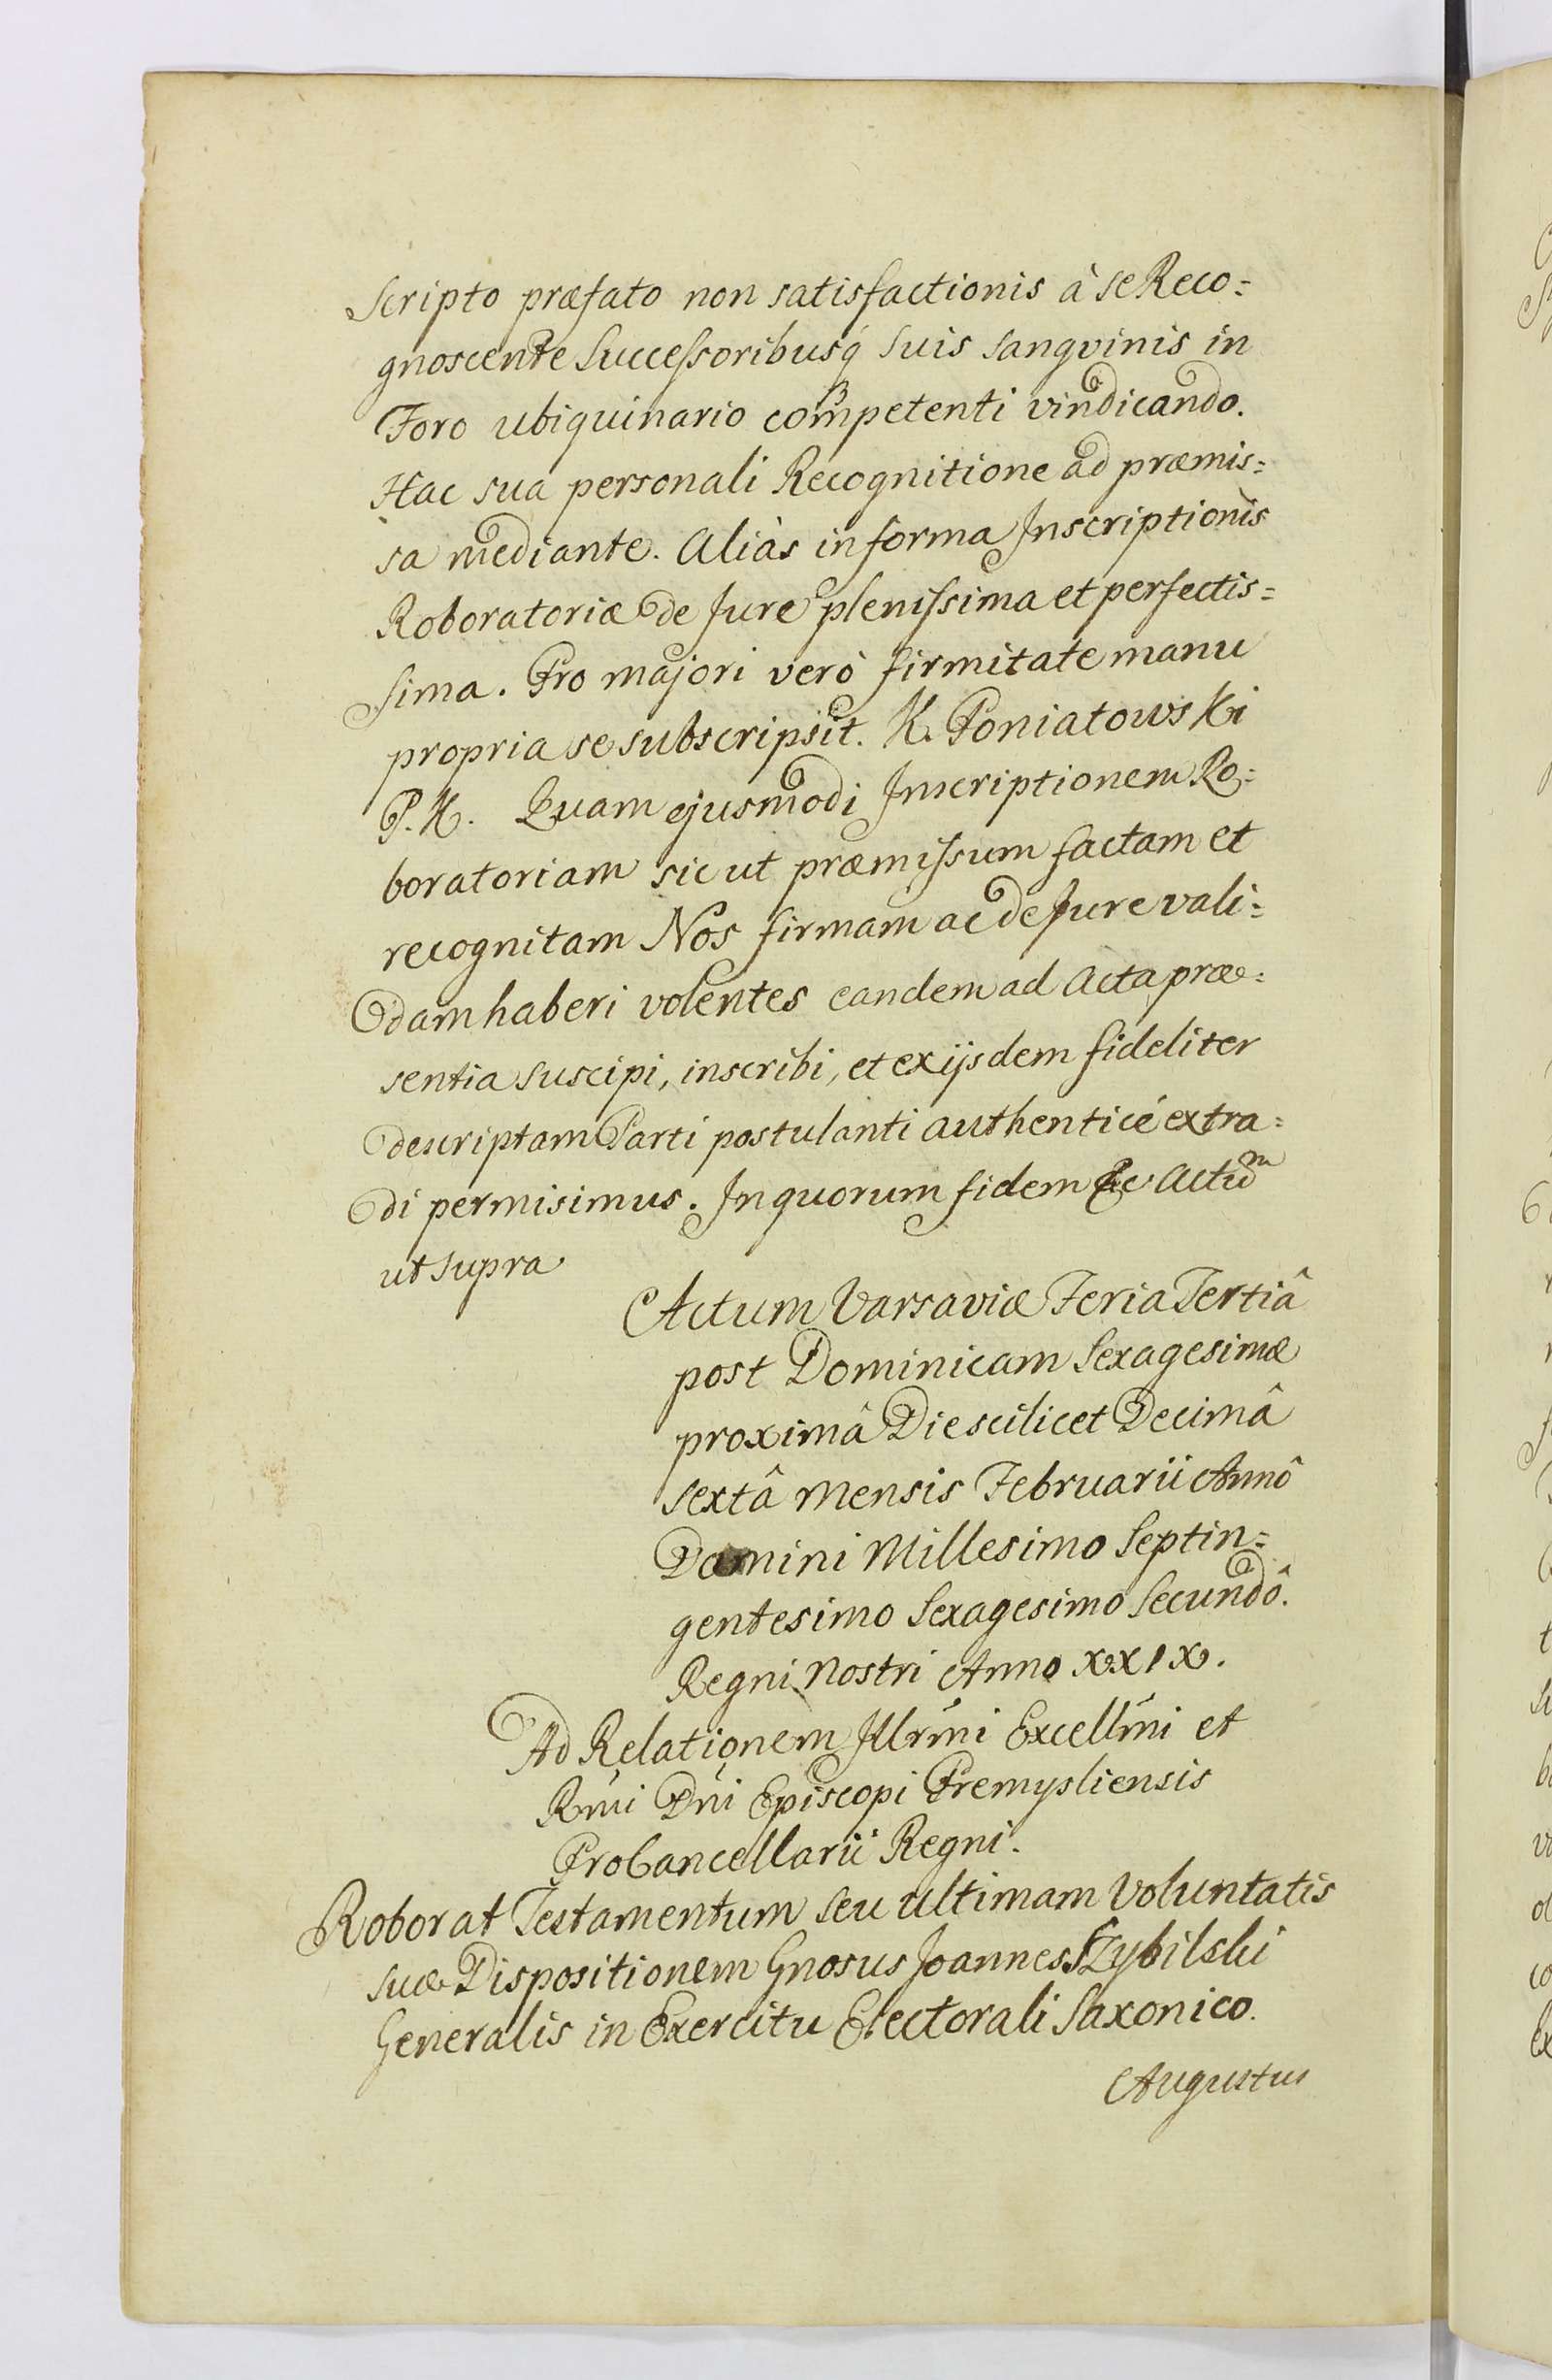 Scripto præfato non satisfactionis à se Reco=
gnoscente Successoribusq́ suis sangvinis in
Foro ubiquinario competenti vindicando.
Hac sua personali Recognitione ad præmis=
sa mediante. Aliàs in forma Inscriptionis
Roboratoriæ de Jure plenissima et perfectis=
sima. Pro majori verò firmitate manu
propria se subscripsit. K. Poniatowski
P. K. Quam ejusmodi Inscriptionem Ro=
boratoriam sic ut præmissum factam et
recognitam Nos firmam ac de Jure vali=
dam haberi volentes eandem ad Acta præ=
sentia suscipi, inscribi, et ex ijsdem fideliter
descriptam Parti postulanti authenticé extra=
di permisimus. In quorum fidem &c Actũm
ut supra
Actum Varsaviæ Feria Tertiâ
post Dominicam Sexagesimæ
proximâ Die scilicet Decimâ
sextâ Mensis Februarii Annô
Domini Millesimo Septin=
gentesimo Sexagesimo Secundô.
Regni Nostri Anno XXIX.
Ad Relationem Illrm̃i Excellm̃i et
Rm̃i Dñi Episcopi Premysliensis
ProCancellarii Regni.
Roborat Testamentum seu ultimam Voluntatis
suæ Dispositionem Gnosus Joannes SZybilski
Generalis in Exercitu Electorali Saxonico.
Augustus